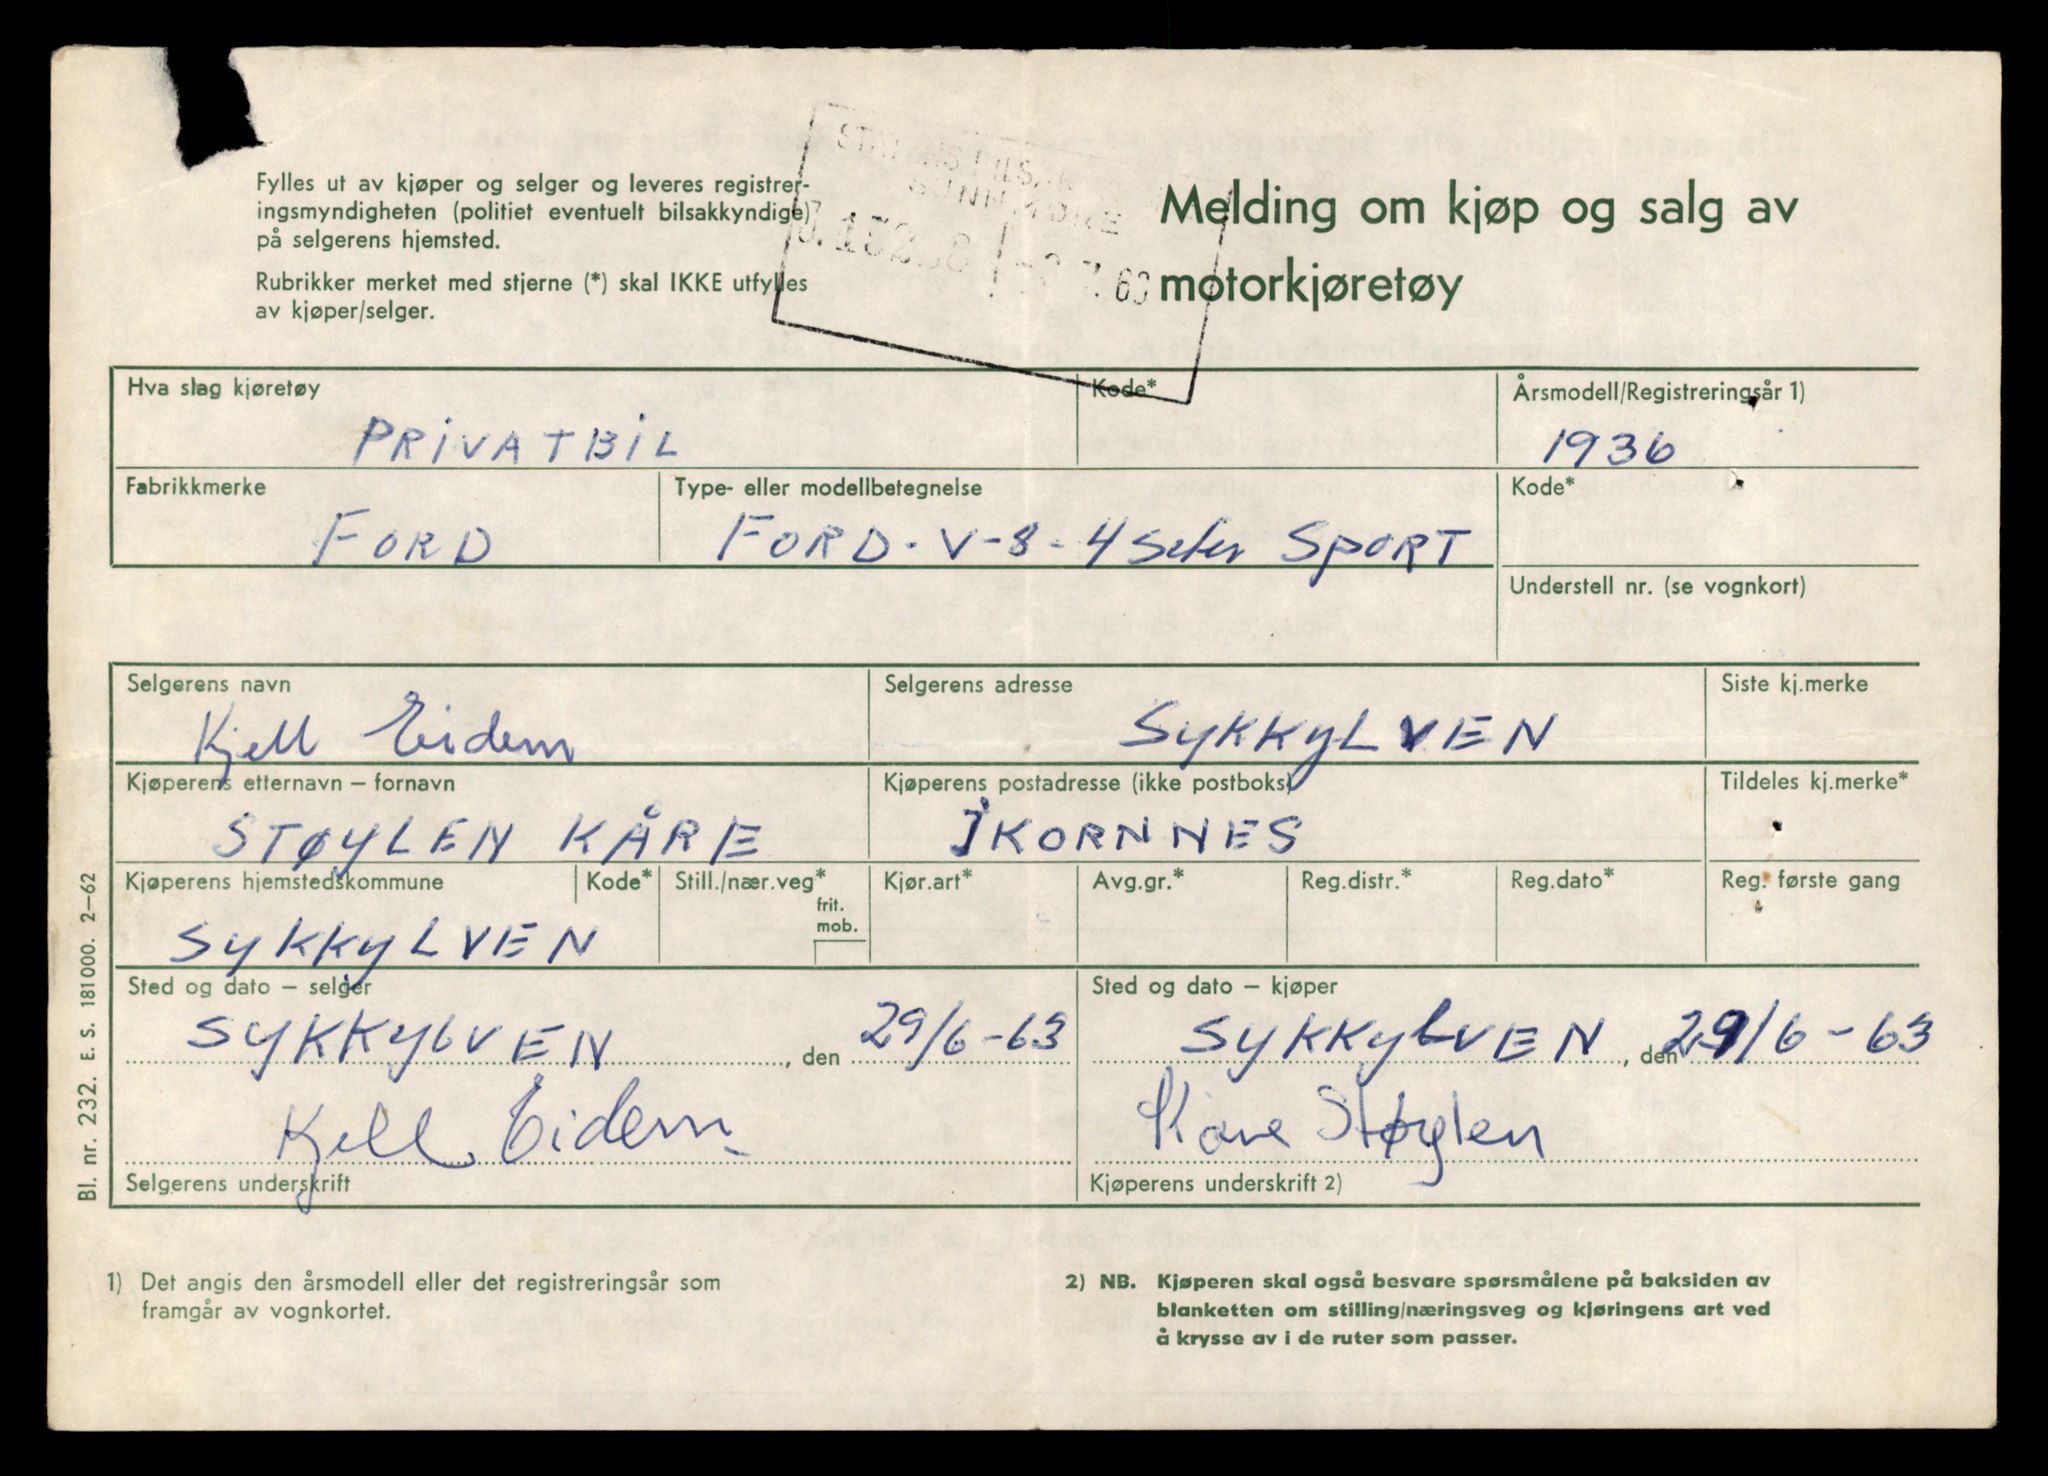 Fylles ut av kjøper og selger og leveres registrer-
ingsmyndigheten (politiet eventuelt bilsakkyndige)
på selgerens hjemsted.
Rubrikker merket med stjerne (*) skal IKKE utfylles
av kjøper/selger.
Melding om kjøp og salg av
motorkjøretøy
Hva slag kjøretøy
PRIVATBIL
Kode*
Årsmodell/Registreringsår 1)
1936
Fabrikkmerke
FORD
Type- eller modellbetegnelse
FORD. V-8-4 seter SPORT
Kode*
Understell nr. (se vognkort)
Selgerens navn
Kjell Eidem
Selgerens adresse
SYKKYLVEN
Siste kj.merke
Kjøperens etternavn – fornavn
STØYLEN KÅRE
Kjøperens postadresse (ikke postboks)
IKORNNES
Tildeles kj.merke*
Kjøperens hjemstedskommune
SYKKYLVEN
Kode*
Still./nær.veg*
frit.
mob.
Kjør.art*
Avg.gr.*
Reg.distr.*
Reg.dato*
Reg. første gang
Sted og dato – selger
SYKKYLVEN, den 29/6-63
Kjell Eidem
Selgerens underskrift
Sted og dato – kjøper
SYKKYLVEN, den 29/6-63
Kåre Støylen
Kjøperens underskrift 2)
Bl. nr. 232. E. S. 181000. 2–62
1) Det angis den årsmodell eller det registreringsår som
framgår av vognkortet.
2) NB. Kjøperen skal også besvare spørsmålene på baksiden av
blanketten om stilling/næringsveg og kjøringens art ved
å krysse av i de ruter som passer.